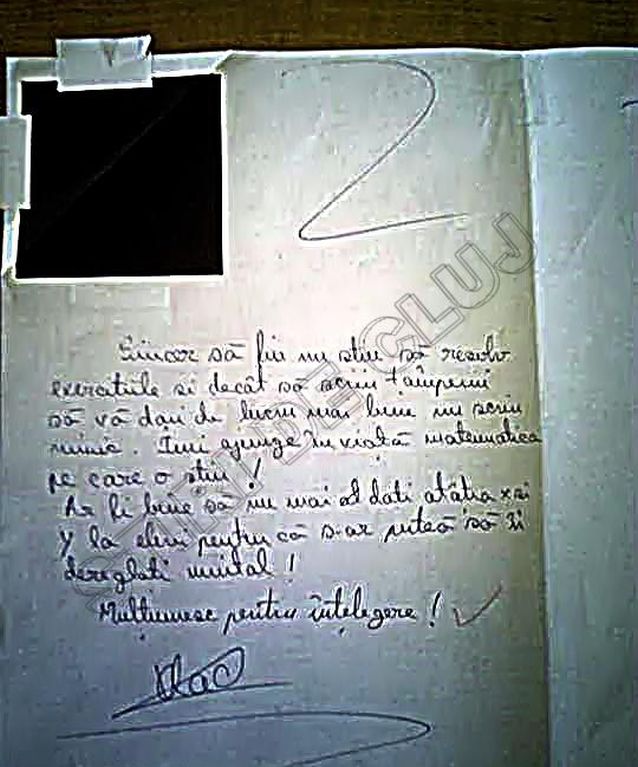 Sincer să fiu nu stiu să rezolv
exercitiile si decât să scriu tâmpenii
să vă dau de lucru mai bine nu scriu
nimic. Imi ajunge în viată matematica
pe care o stiu!
Ar fi bine să nu mai dati atâtia x si
y la elevi pentru că s-ar putea să îi
dereglati mintal!
Multumesc pentru întelegere!
STIRI DE CLUJ